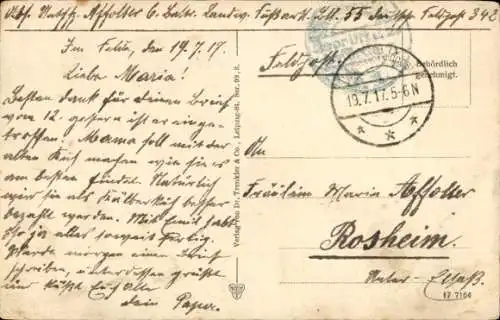 Abs. Affolter 6. Battr. Landw. Fußart. Btl. 55 Feldpost 342
Im Felde, den 19.7.17.
Liebe Maria!
Besten Dank für deinen Brief
vom 12. gestern ist er einge-
troffen. Mama soll mit der
alten Kuh machen wie sie es
am besten findet. Natürlich
wird sie als Kälberkuh besser
bezahlt werden. Mit Emil habt
Ihr ja alles soweit fertig.
Werde morgen einen Brief
schreiben, unterdessen grüßt
und küßt Euch alle
dein Papa.
Verlag von Dr. Trenkler & Co., Leipzig-St. Ber. 99, 8.
Feldpost.
Behördlich
genehmigt.
19.7.17. 5-6 N
An
Fräulein Maria Affolter
Rosheim.
Unter-Elsaß.
17 7104